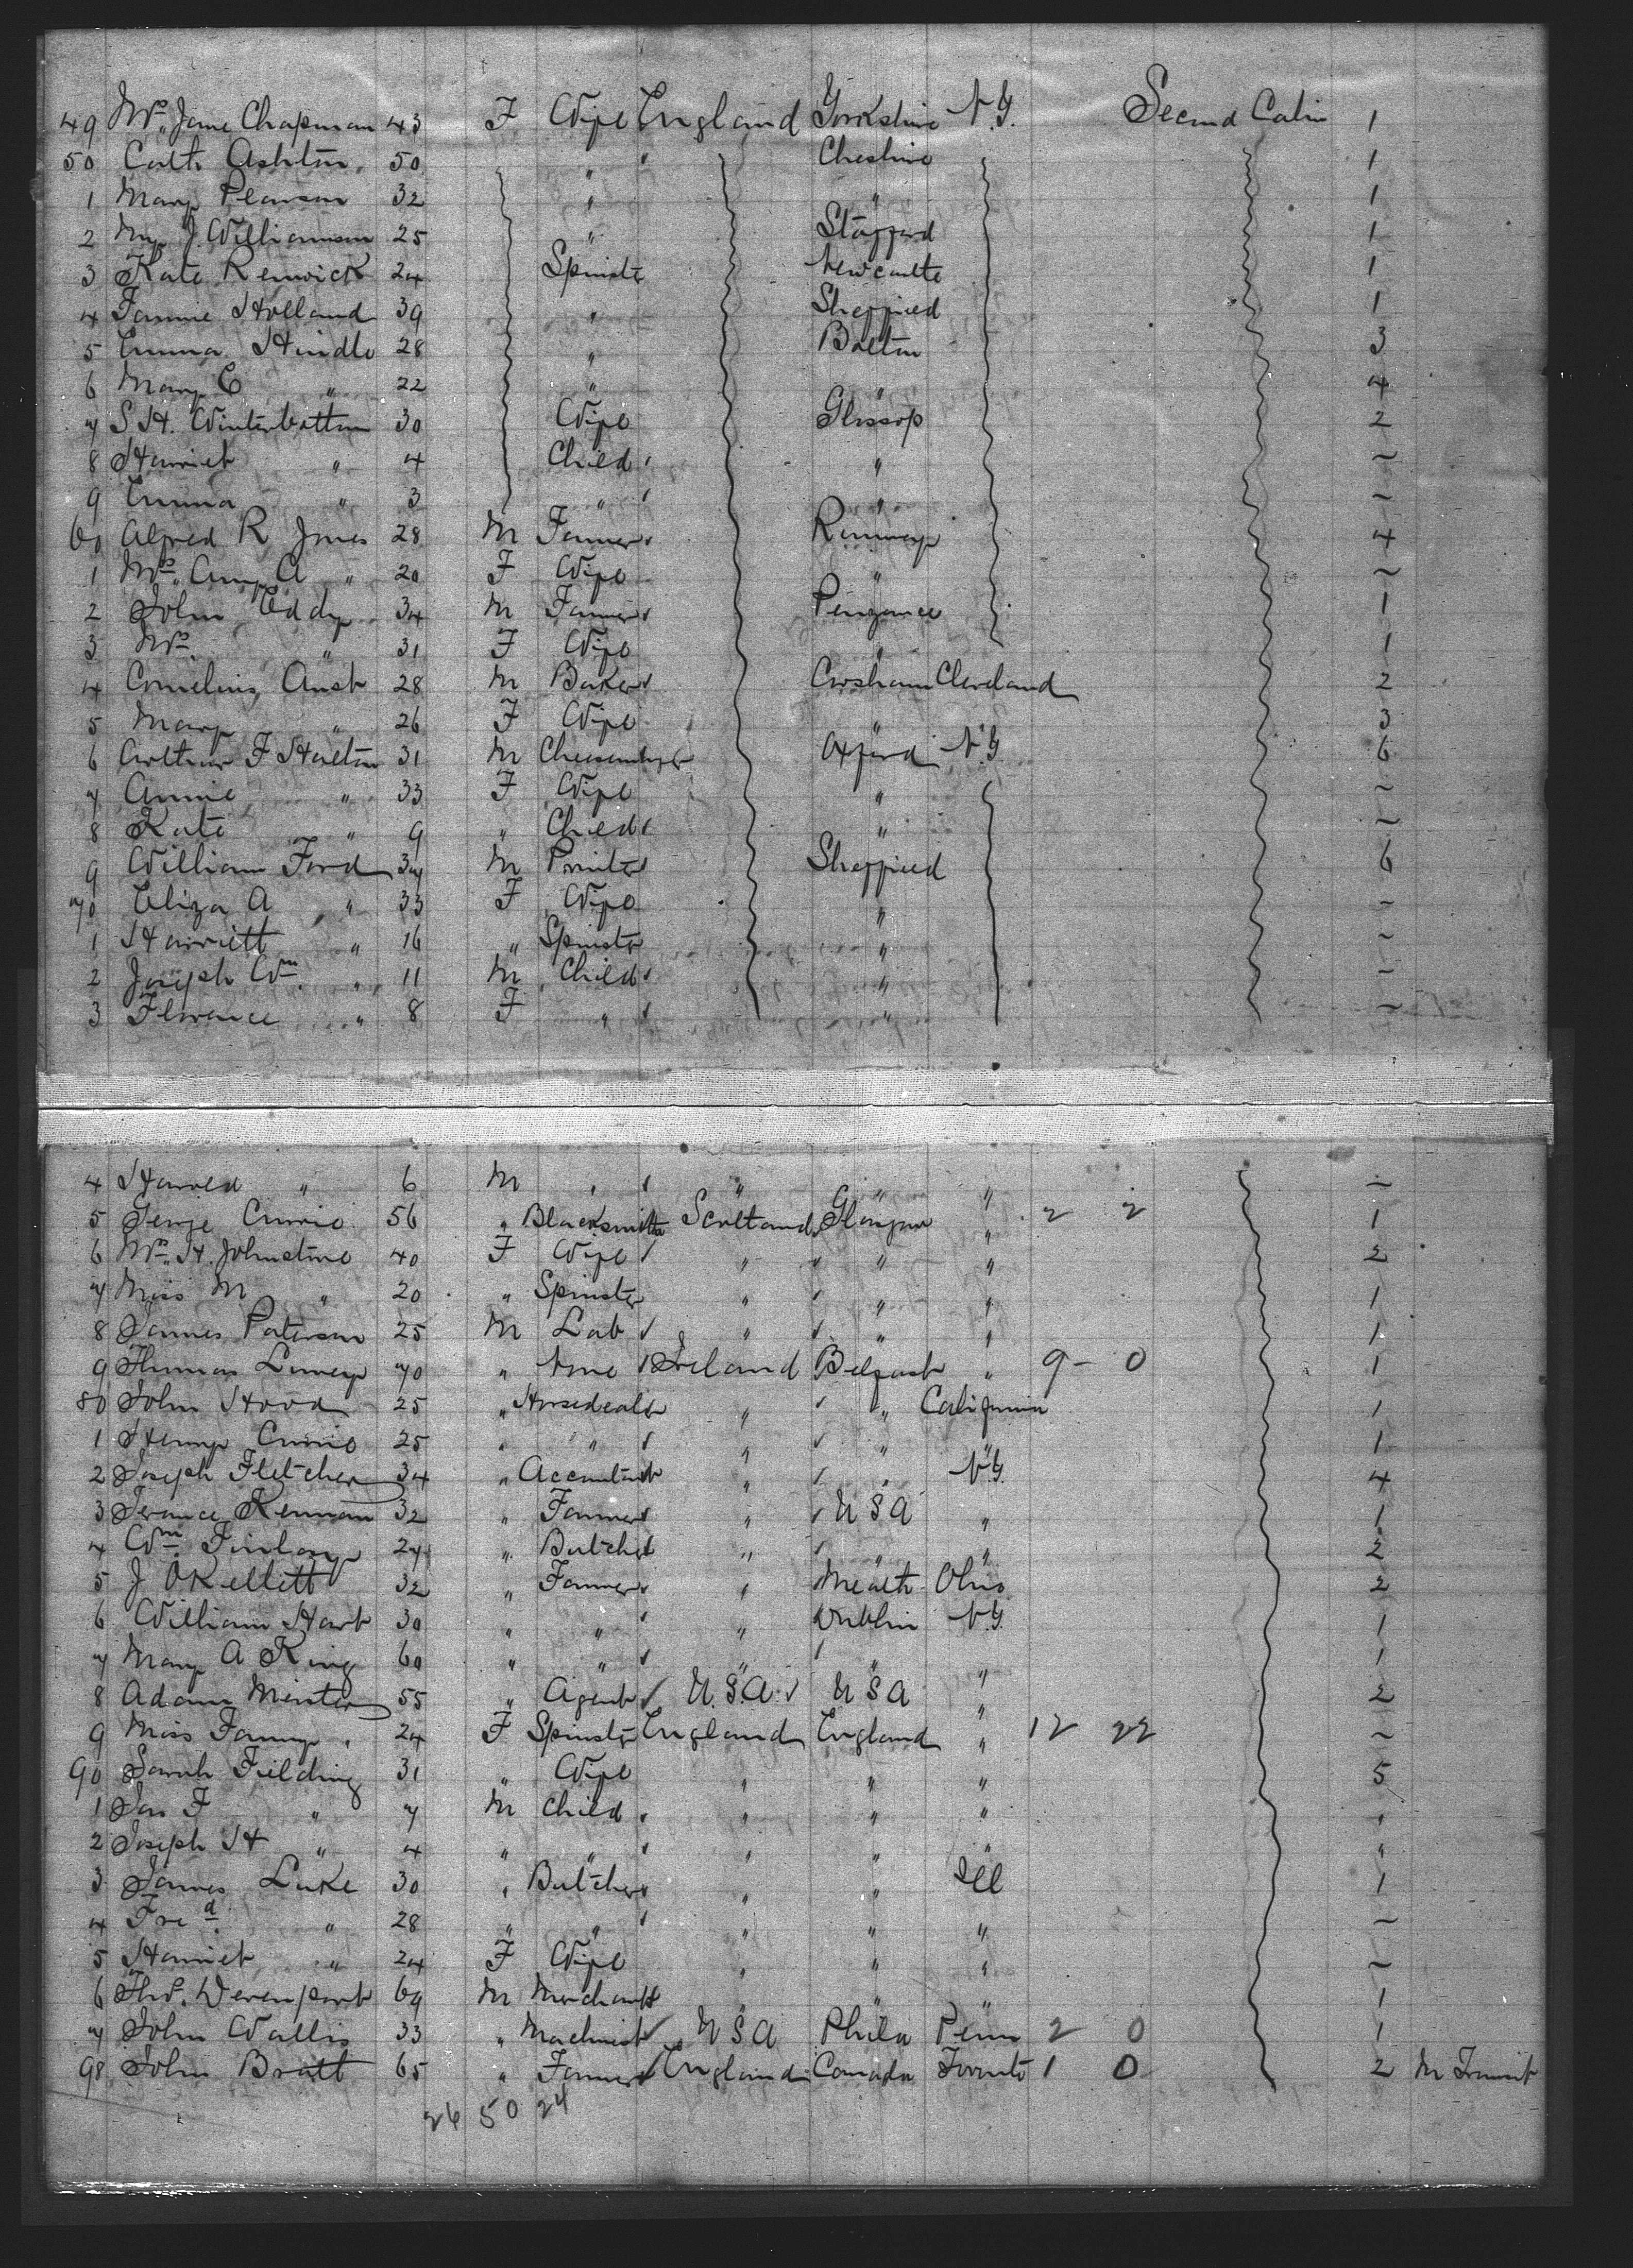 49 Mrs Jane Chapman 43 F Wife England Yorkshire N.Y. Second Cabin 1
50 Cath Ashton 50 " " Cheshire 1
1 Mary Pearson 32 " " 1
2 J. Williamson 25 " Stafford 1
3 Kate Renwick 24 Spinster Newcastle 1
4 Fannie Holland 39 " Sheffield 1
5 Emma Hindle 28 " Bolton 3
6 Mary E " 22 " " 4
7 S. H. Winterbottom 30 Wife Glossop 2
8 Harriet " 4 Child " ~
9 Emma " 3 " " ~
60 Alfred R Jones 28 M Farmer 4
1 Mrs Amy A " 20 F Wife " ~
2 John Eddy 34 M Farmer Penzance 1
3 Mrs " 31 F Wife " 1
4 Cornelius Aust 28 M Baker Corsham Cleveland 2
5 Mary " 26 F Wife " 3
6 Arthur F 31 M Oxford N.Y. 6
7 Annie " 33 F Wife " ~
8 Kate " 9 " Child " ~
9 William Ford 37 M Printer Sheffield 6
70 Eliza A " 33 F Wife " ~
1 Harriett " 16 " Spinster " ~
2 Joseph Wm " 11 M Child " ~
3 Florence " 8 F " " ~
4 Harold " 6 M " " " " ~
5 George Currie 56 " Blacksmith Scotland Glasgow " 2 2 1
6 Mrs H. Johnstone 40 F Wife " " " 2
7 Miss M " 20 " Spinster " " " 1
8 James Paterson 25 M Lab " " " 1
9 Thomas 70 " None Ireland Belfast " 9 - 0 1
80 John Hood 25 " Horsedealer " " California 1
1 Henry Currie 25 " " " " " 1
2 Joseph Fletcher 34 " Accountant " " N.Y. 4
3 32 " Farmer " U S A " 1
4 Wm Finlay 27 " Butcher " " " 2
5 J O Kellett 32 " Farmer " Meath Ohio 2
6 William Hart 30 " " " Dublin N.Y. 1
7 Mary A King 60 " " " " " 1
8 Adam 55 " Agent U.S.A U S A " 2
9 Miss Fanny " 24 F Spinster England England " 12 22 ~
90 Sarah Fielding 31 " Wife " " " 5
1 Jas F " 7 M Child " " " "
2 Joseph H " 4 " " " " " "
3 James Luke 30 " Butcher " " Ill 1
4 Fred " 28 " " " " " ~
5 Harriet " 24 F Wife " " " ~
6 Thos. Devenport 69 M Merchant " " 1
7 John Wallis 33 " Machinist U S A Phila Penn 2 0 1
98 John Bratt 65 " Farmer England Canada Toronto 1 0 2 In Transit
26 50 24